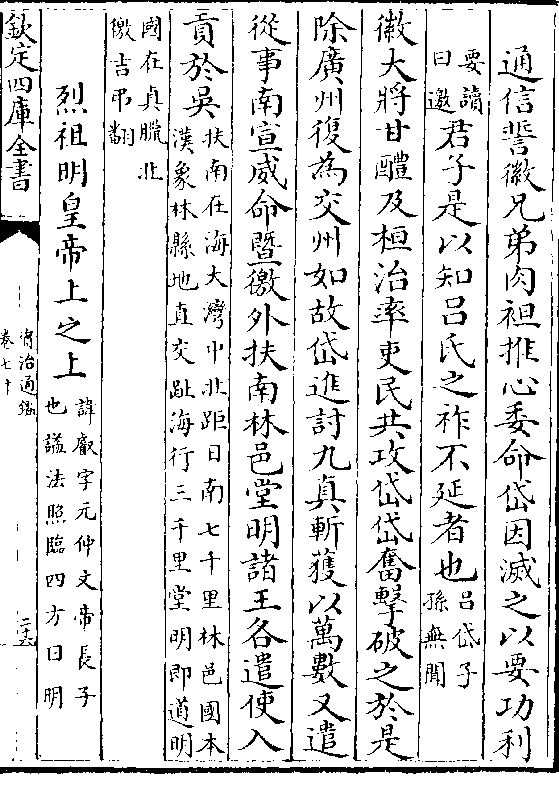 通信誓徽兄弟肉袒推心委命岱因滅之以要功利
要讀曰邀君子是以知吕氏之祚不延者也吕岱子孫無聞
徽大將甘醴及桓治率吏民共攻岱岱奮擊破之於是
除廣州復為交州如故岱進討九真斬獲以萬數又遣
從事南宣威命暨徼外扶南林邑堂明諸王各遣使入
貢於吳扶南在海大灣中北距日南七千里林邑國本漢象林縣地直交趾海行三千里堂明即道明
國在真臘北徼吉弔翻
烈祖明皇帝上之上諱叡字元仲文帝長子也謚法照臨四方曰明
欽定四庫全書
資治通鑑
卷七十
二十六